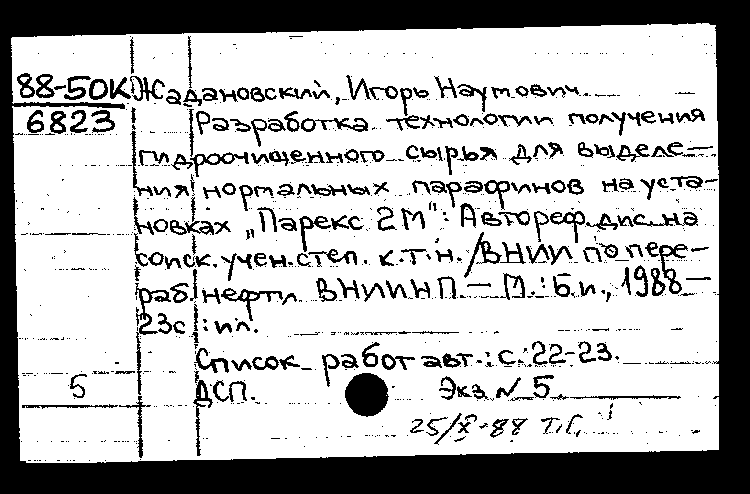 88-50К Жадановский, Игорь Наумович.
6823 Разработка технологии получения
гидроочищенного сырья для выделе-
ния нормальных парафинов на уста-
новках „Парекс 2М": Автореф. дис. на
соиск. учен. степ. к.т.н. /ВНИИ по пере-
раб. нефти ВНИИНП. — М.: Б.и., 1988 —
23с.: ил.
Список работ авт.: с. 22-23.
5 ДСП. Экз. N 5.
25/X-88 Т.Г.